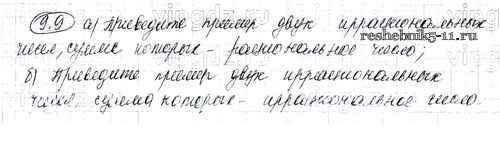 9.9 а) Приведите пример двух иррациональных
чисел, сумма которых - рациональное число;
reshebnik5-11.ru
б) Приведите пример двух иррациональных
чисел, сумма которых - иррациональное число.